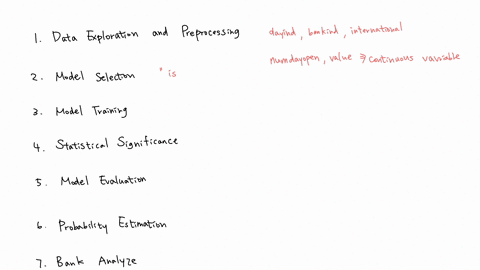 1. Data Exploration and Preprocessing
dayind, bankind, international
numdayopen, value ⇒ continuous variable
2. Model Selection * is
3. Model Training
4. Statistical Significance
5. Model Evaluation
6. Probability Estimation
7. Bank Analyze